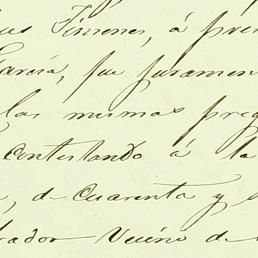 Jimenes, á pre
García, fue juramen
las mismas preg
contestando á la
, de cuarenta y s
rador Vecino de